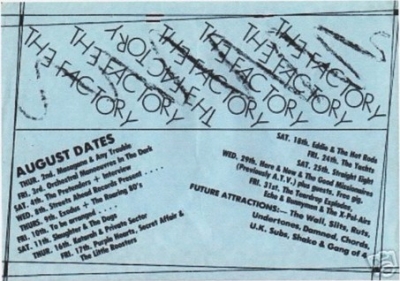 THE FACTORY
THE FACTORY
THE FACTORY
THE FACTORY
THE FACTORY
THE FACTORY
AUGUST DATES
THUR. 2nd. Management & Any Trouble
FRI. 3rd. Orchestral Manoeuvres In The Dark
SAT. 4th. The Pretenders + Interview
WED. 8th. Streets Album Records Present
THURS. 9th. Exodus + The Running 80's
FRI. 10th. To be arranged
SAT. 11th. Slaughter & The Dogs
THUR. 16th. Naturals & Private Sector
FRI. 17th. Purple Hearts, Secret Affair &
The Little Roosters
SAT. 18th. Eddie & The Hot Rods
FRI. 24th. The Yachts
SAT. 25th. Straight Eight
WED. 29th. Here & Now & The Good Missionaries
(Previously A.T.V.) plus guests. Free gig.
FRI. 31st. The Teardrop Explodes
Echo & Bunnymen & The X-Pel-Airs
FUTURE ATTRACTIONS:— The Wall, Slits, Ruts,
Undertones, Damned, Chords,
U.K. Subs, Shake & Gang of 4